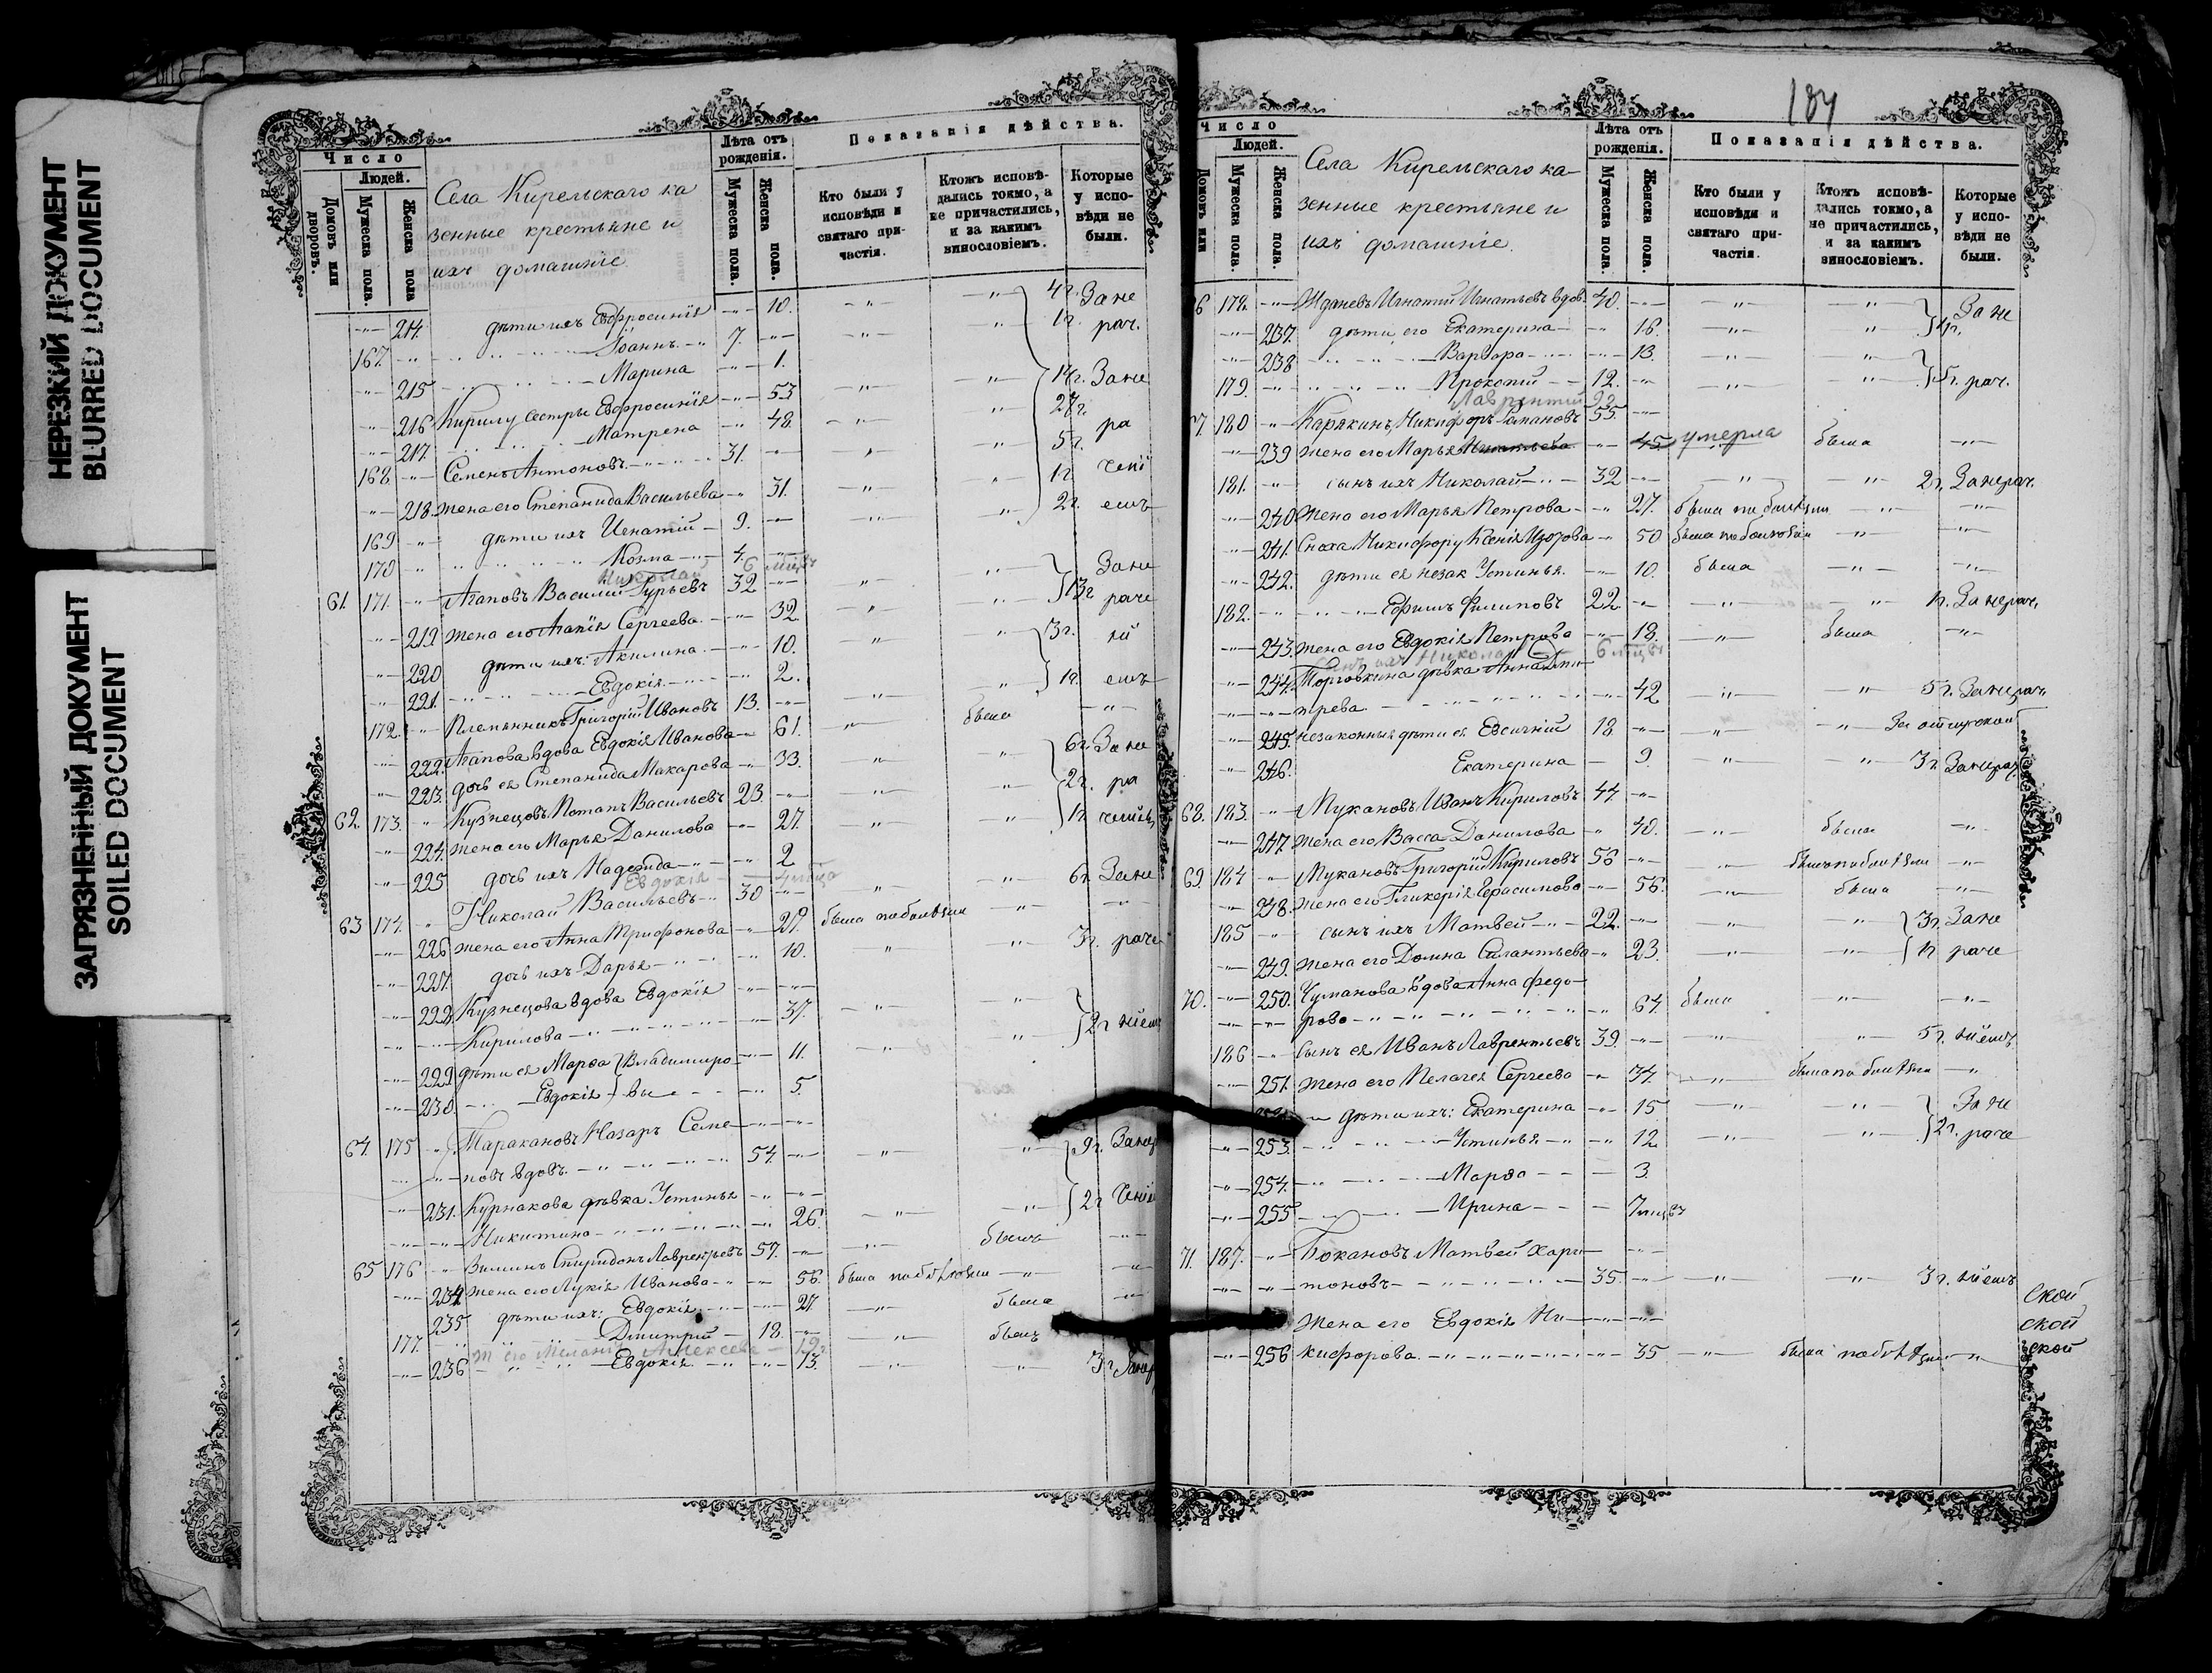 НЕРЕЗКИЙ ДОКУМЕНТ
BLURRED DOCUMENT
ЗАГРЯЗНЕННЫЙ ДОКУМЕНТ
SOILED DOCUMENT
Число
Людей.
Домовъ или дворовъ.
Мужеска пола.
Женска пола
Села Кирельскаго ка
зенные крестьяне и
ихъ домашніе
Лѣта отъ рожденія.
Мужеска пола.
Женска пола.
Показанія дѣйства.
Кто были у исповѣди и святаго причастія.
Ктожъ исповѣдались токмо, а не причастились, и за какимъ винословіемъ.
Которые у исповѣди не были.
214. дѣти ихъ Евфросинія 10. 4 г. За не
167. Іоаннъ 7. 1 г. рач.
215 Марина 1.
216 Кирилу сестры Евфросинія 53 За не
217 Матрена 48. ра
168 Семенъ Антоновъ 31. 5 г.
218. жена его Степанида Васильева 31. 1 г.
169 дѣти ихъ Игнатій 9. 2 г. емъ
170 Козма 4
Николай 6 мцвъ
61. 171. Агаповъ Василій Гурьевъ 32 За не
219 жена его Агапія Сергеева 32. 13 г. раче
220 дѣти ихъ: Акилина 10. 3 г.
221. Евдокія 2. 1 г. емъ
172. Племянникъ Григорій Ивановъ 13.
222. Агапова вдова Евдокія Иванова 61. была
223. дочь ея Степанида Макарова 33. 6 г. За не
62. 173. Кузнецовъ Потапъ Васильевъ 23. 2 г. ра
224. жена его Марья Данилова 27. 1 г.
225 дочь ихъ Надежда 2
Евдокія
63 174. Николай Васильевъ 30 6 г. За не
226 жена его Анна Трифонова 27. была по болѣзни
227. дочь ихъ Дарья 10. 3 г. раче
228. Кузнецова вдова Евдокія
Кирилова 37.
229 дѣти ея Марѳа Владимиро 11. 2 г. ніемъ
230. Евдокія вы 5.
64. 175 Таракановъ Назаръ Семе
новъ вдовъ 54. 9 г.
231. Курнакова дѣвка Устинья
Никитина 26. 2 г.
65 176 Зиминъ Спиридонъ Лаврентьевъ 57. былъ
234. жена его Лукія Иванова 56. была по болѣзни
235 дѣти ихъ: Евдокія 21. была
177. Дмитрій 18. былъ
ж его Меланія Алексеева 19
236 Евдокія 13. 3 г.
184
Число
Людей.
Домовъ или
Мужеска пола.
Женска пола.
Села Кирельскаго ка
зенные крестьяне и
ихъ домашніе.
Лѣта отъ рожденія.
Мужеска пола.
Женска пола.
Показанія дѣйства.
Кто были у исповѣди и святаго причастія.
Ктожъ исповѣдались токмо, а не причастились, и за какимъ винословіемъ.
Которые у исповѣди не были.
6 178. Ждановъ Игнатій Игнатьевъ вдов. 40. За не
237. дѣти его Екатерина 16. 4 г.
238 Варвара 13.
179. Прокопій 12. 5 г. рач.
Лаврентій 92
7. 180 Карякинъ Никифоръ Романовъ 55.
239 жена его Марья Игнатьева 45. умерла была
181. сынъ ихъ Николай 32 2 г. За нерач.
240 жена его Марья Петрова 27. была по болѣзни
241. Сноха Никифору Ксенія Изотова 50 была по болѣзни
242. дѣти ея незак Устинья 10. была
182. Ефимъ Филиповъ 22. 1 г. За нерач.
243. жена его Евдокія Петрова 18. была
сынъ ихъ Никола 6 мцвъ
244. Торговкина дѣвка Анна Дми
трева 42 5 г. За нерач
245. незаконныя дѣти ея Евсигній 18 За отлучкой
246. Екатерина 9. 3 г. За нерач
68. 183. Мукановъ Иванъ Кириловъ 44.
247. жена его Васса Данилова 40. была
69. 184 Мукановъ Григорій Кириловъ 56 была по болѣзни
248. жена его Гликерія Герасимова 56. была
185 сынъ ихъ Матвей 22. 3 г. За не
249. жена его Домна Силантьева 23. 1 г. раче
70. 250. Чуманова вдова Анна Федо
рова 64. была
186 Сынъ ея Иванъ Лаврентьевъ 39. 5 г. ніемъ
251. жена его Пелагея Сергеева 34. была по болѣзни
дѣти ихъ: Екатерина 15 За не
253. Устинья 12 2 г. раче
254. Марѳа 3.
255 Ирина 7 мцвъ
71. 187. Бокановъ Матвей Хари
тоновъ 35. 3 г. ніемъ
жена его Евдокія Ни
256 кифорова 35 была по болѣзни
ской
ской
ской